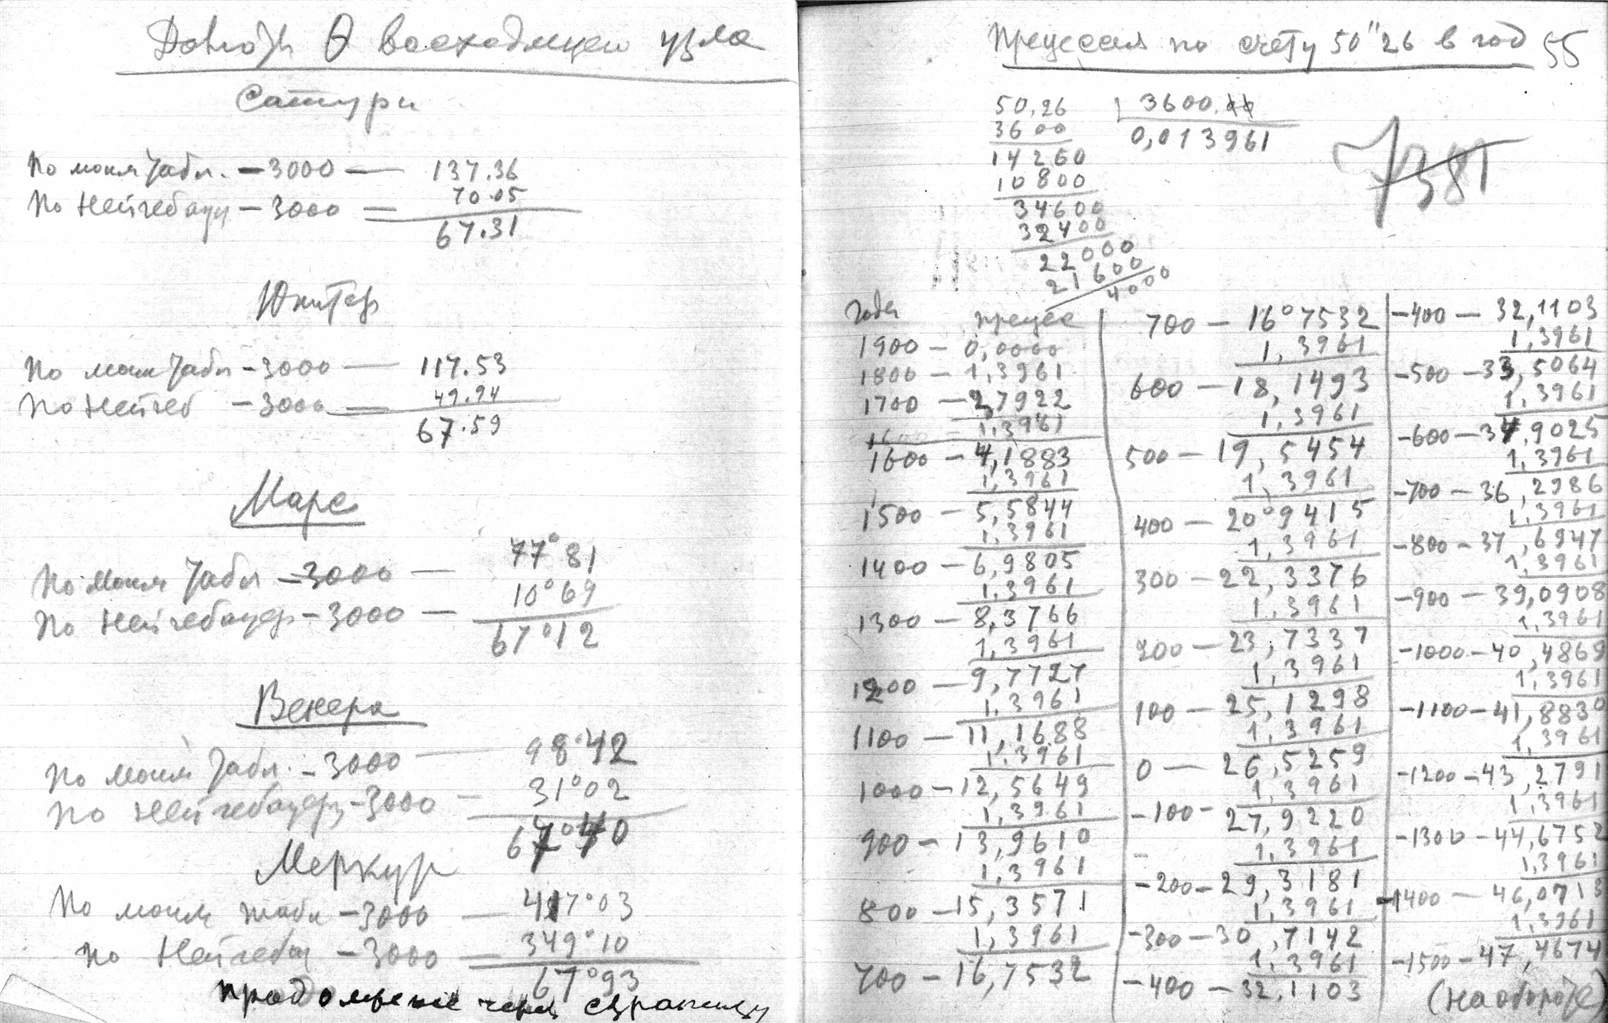 Долгота восходящего узла
Сатурн
По моим табл. – 3000 — 137.36
По Нейгебауеру – 3000 = 70.05
67.31
Юпитер
По моим табл – 3000 — 117.53
По Нейгеб – 3000 — 49.94
67.59
Марс
По моим табл – 3000 — 77°81
10°69
По Нейгебауер – 3000 —
67°12
Венера
По моим табл. – 3000 — 98°42
По Нейгебауеру – 3000 — 31°02
67°40
Меркур
По моим табл – 3000 — 417°03
По Нейгебау – 3000 — 349°10
67°93
продолжение через страницу
Прецессия по счету 50"26 в год 55
50,26 3600.
3600 0,013961
14260
10800
34600
32400
22000
21600
4000
7381
Годы прецес
1900 – 0,0000
1800 – 1,3961
1700 – 2,7922
1,3961
1600 – 4,1883
1,3961
1500 – 5,5844
1,3961
1400 – 6,9805
1,3961
1300 – 8,3766
1,3961
1200 – 9,7727
1,3961
1100 – 11,1688
1,3961
1000 – 12,5649
1,3961
900 – 13,9610
1,3961
800 – 15,3571
1,3961
700 – 16,7532
700 – 16°7532
1,3961
600 – 18,1493
1,3961
500 – 19,5454
1,3961
400 – 20°9415
1,3961
300 – 22,3376
1,3961
200 – 23,7337
1,3961
100 – 25,1298
1,3961
0 — 26,5259
1,3961
-100 – 27,9220
1,3961
-200 – 29,3181
1,3961
-300 – 30,7142
1,3961
-400 – 32,1103
-400 — 32,1103
1,3961
-500 – 33,5064
1,3961
-600 – 34,9025
1,3961
-700 – 36,2986
1,3961
-800 – 37,6947
1,3961
-900 – 39,0908
1,3961
-1000 – 40,4869
1,3961
-1100 – 41,8830
1,3961
-1200 – 43,2791
1,3961
-1300 – 44,6752
1,3961
-1400 — 46,0713
1,3961
-1500 – 47,4674
(На обороте)